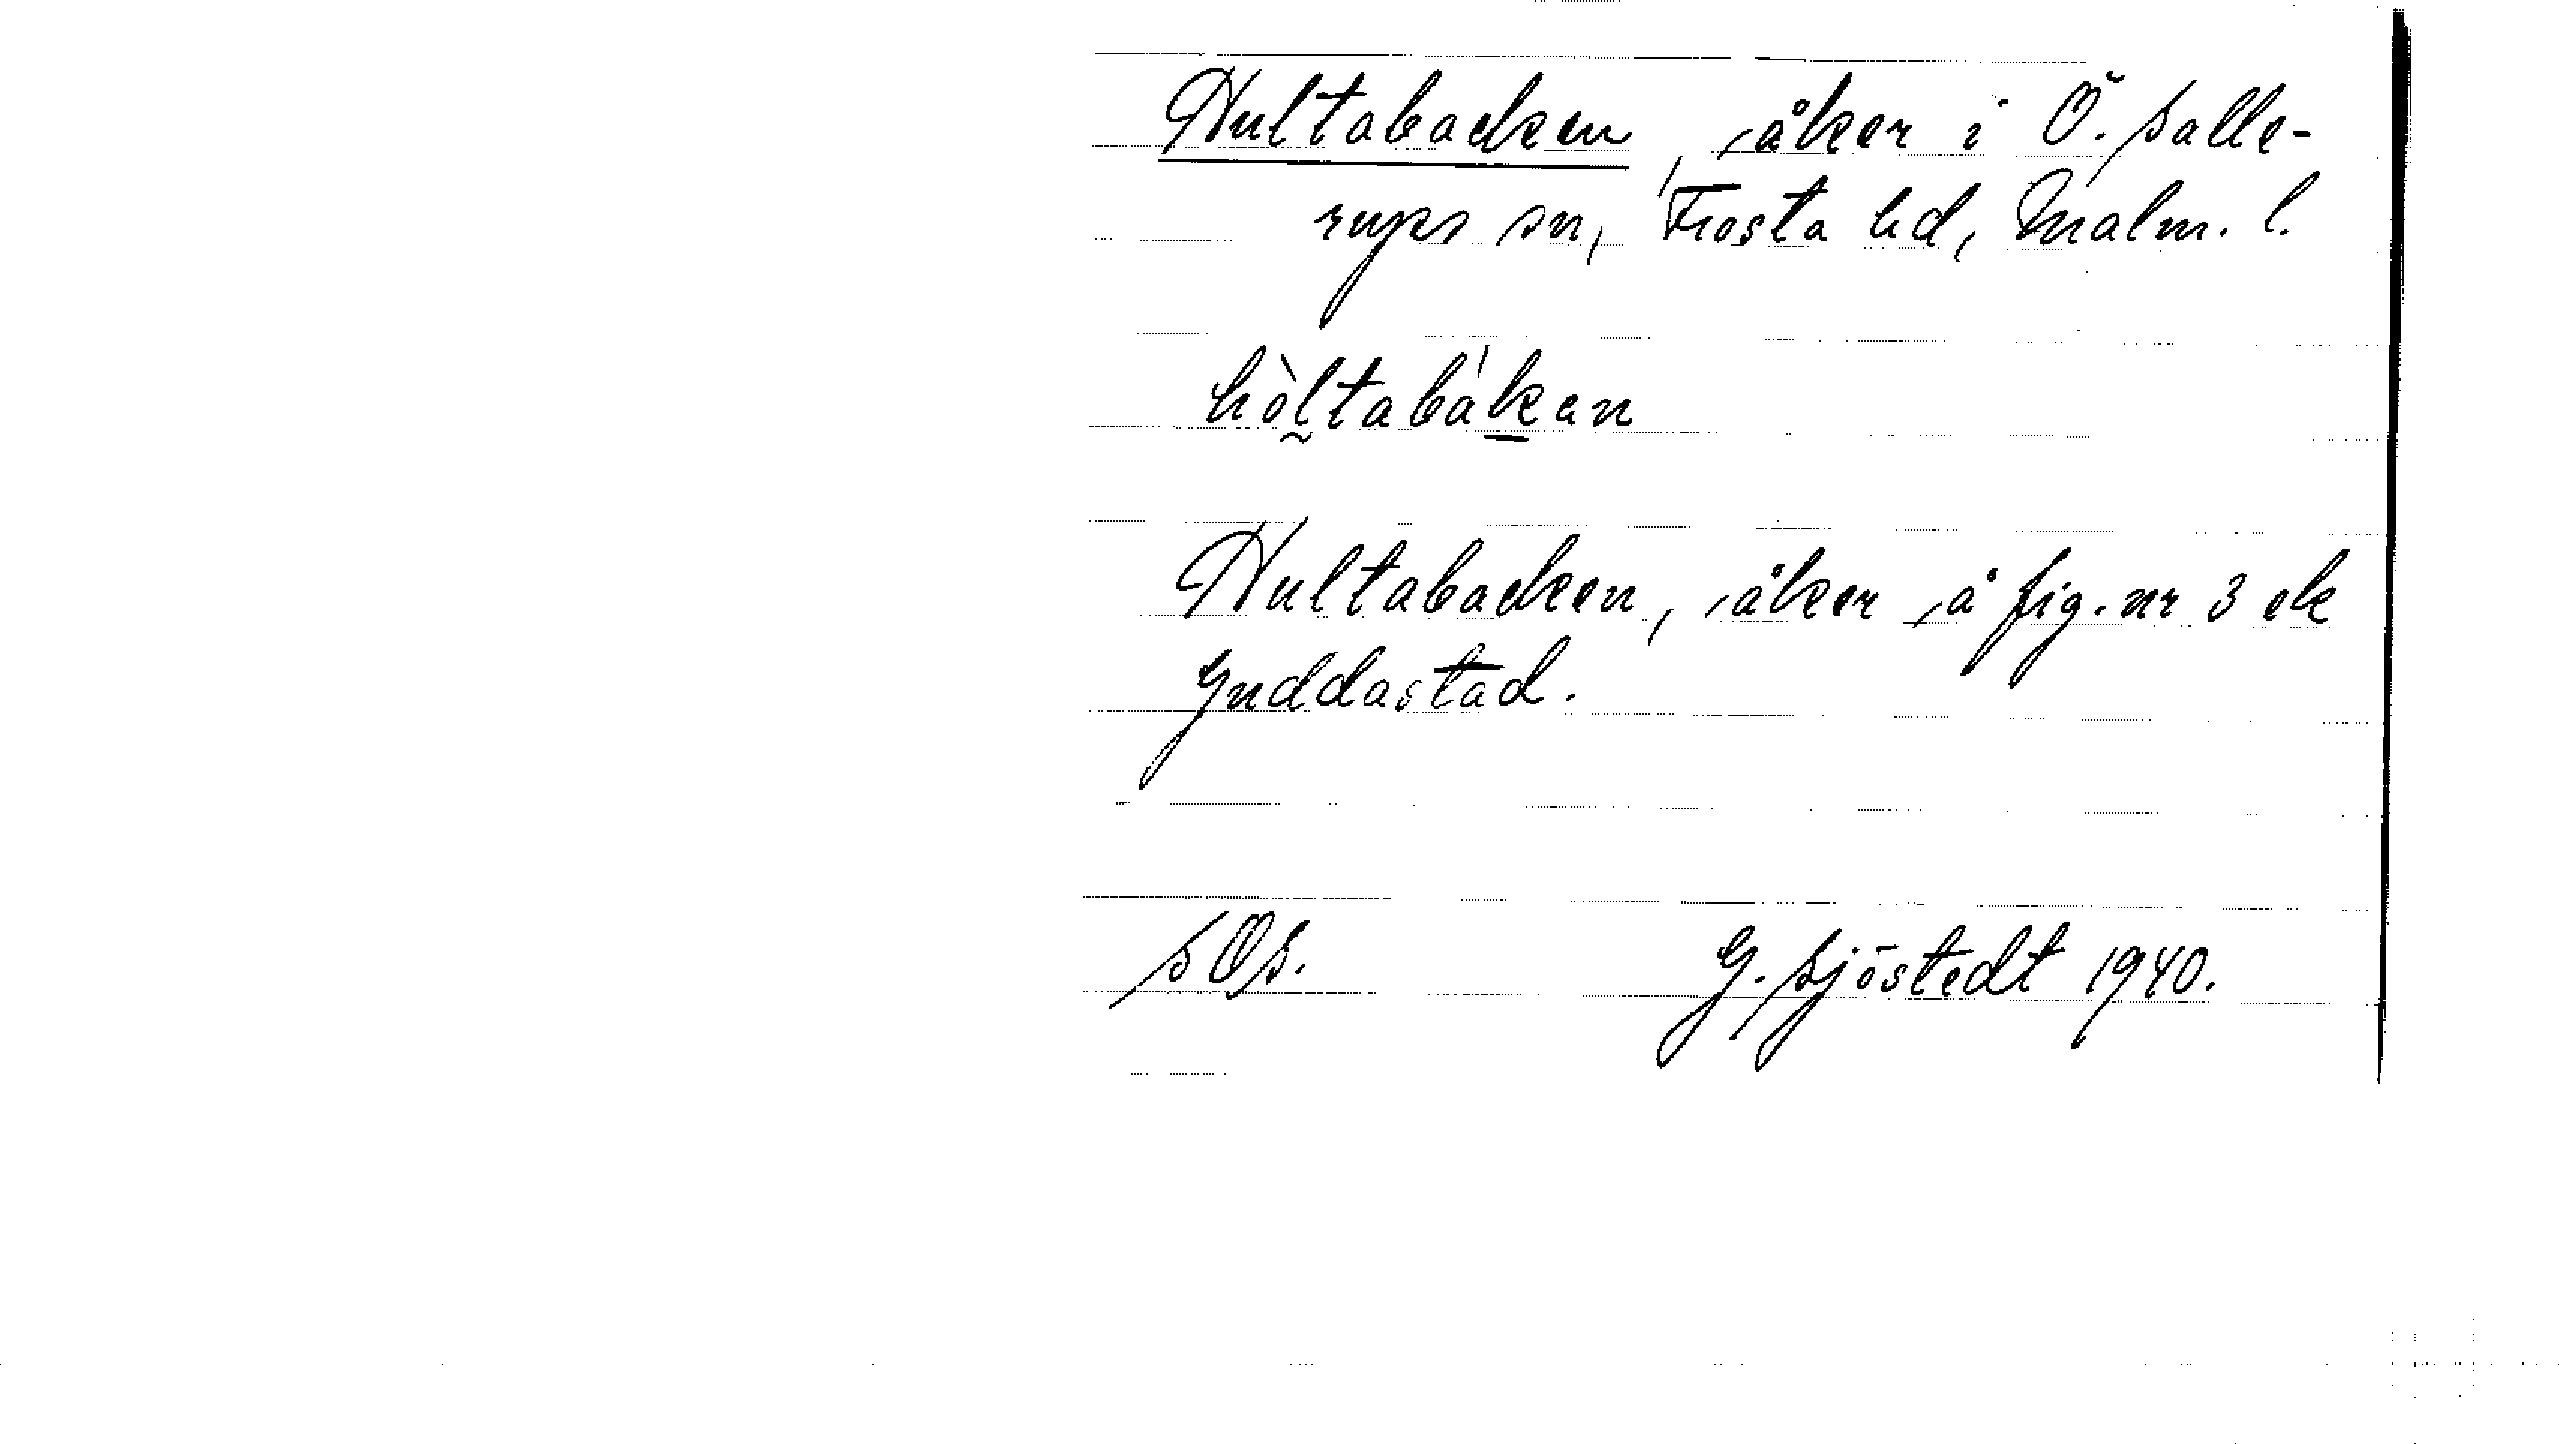 Hultabacken, åker i Ö. Salle-
rups sn, Frosta hd, Malm. l.
hòl̰tabák̲an
Hultabacken, åker å fig. nr 3 ek
Guddastad.
SOS.
G. Sjöstedt 1940.